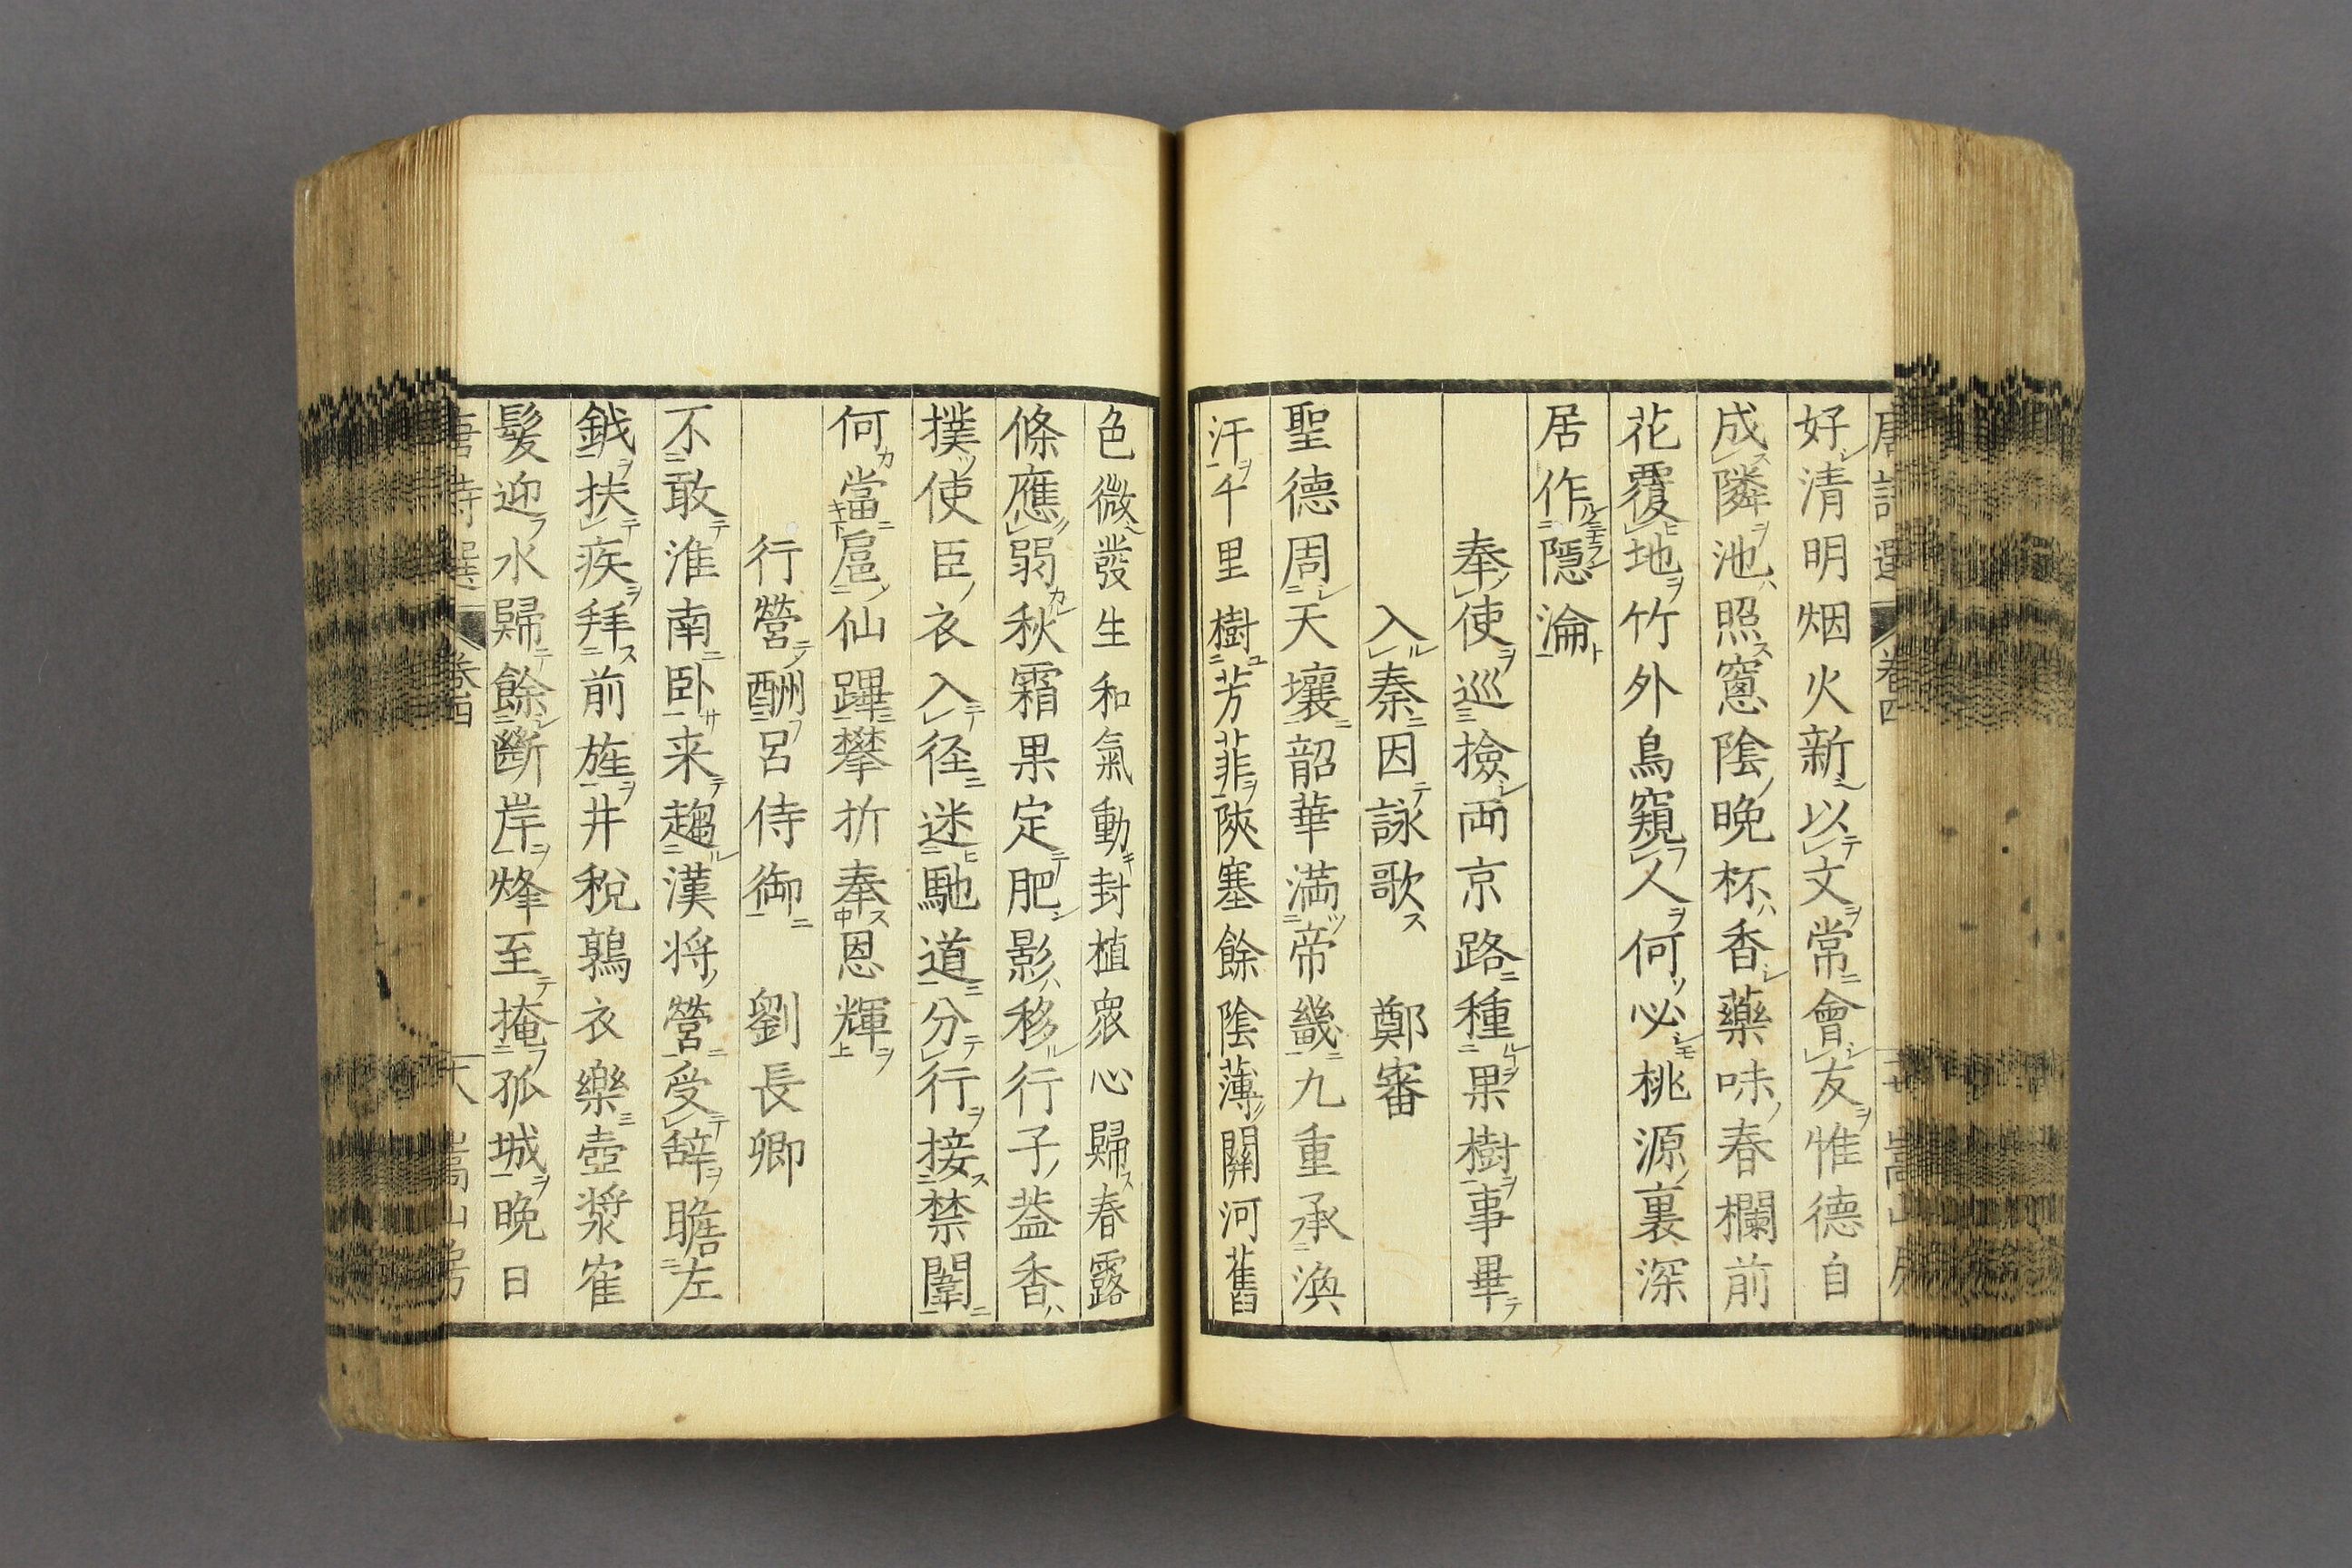 唐詩選 卷四 嵩山房
好清明烟火新以文常會友惟德自
成隣池照窻陰晚杯香藥味春欄前
花覆地竹外鳥窺人何必桃源裏深
居作隱淪
奉使巡撿両京路種果樹事畢
入秦因詠歌 鄭審
聖德周天壤韶華満帝畿九重承渙
汗千里樹芳菲陝塞餘陰薄關河舊
色微發生和氣動封植衆心歸春露
條應弱秋霜果定肥影移行子葢香
撲使臣衣入徑迷馳道分行接禁闈
何當扈仙蹕攀折奉恩輝
行營酬呂侍御 劉長卿
不敢淮南卧来趨漢将營受辞瞻左
鉞扶疾拜前旌井稅鶉衣樂壺漿崔
髮迎水歸餘斷岸烽至掩孤城晚日
唐詩選 卷四 十八 嵩山房